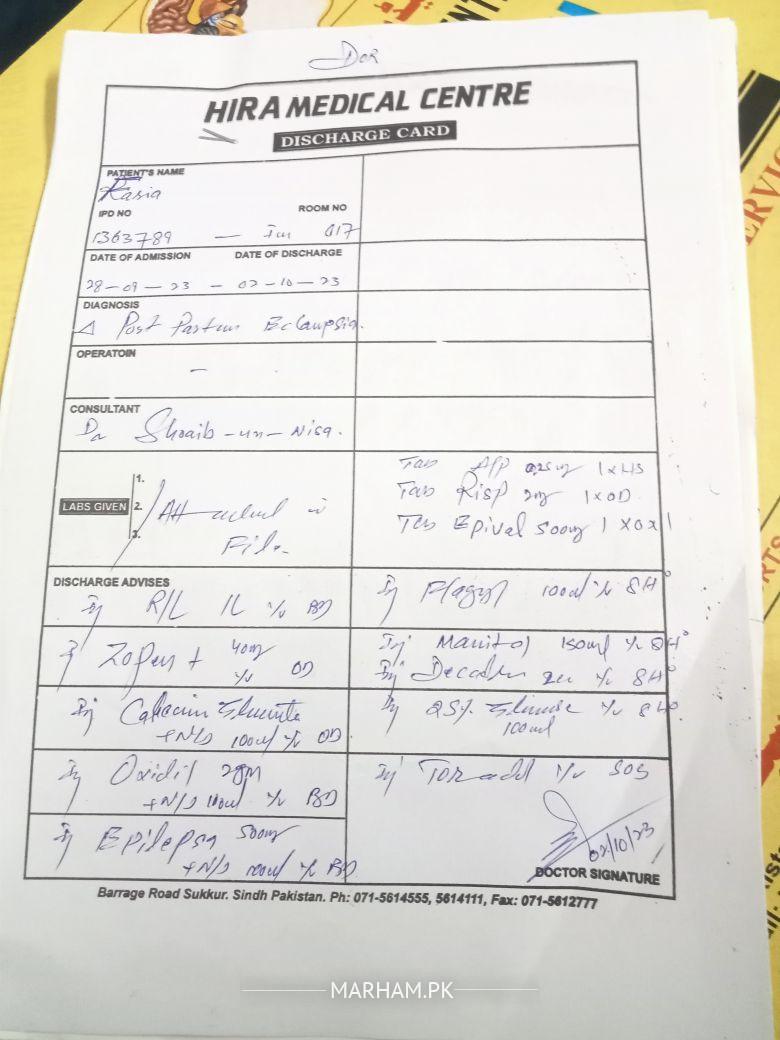 Dor
HIRA MEDICAL CENTRE
DISCHARGE CARD
PATIENT'S NAME
Rasia
IPD NO ROOM NO
1363789 — 017
DATE OF ADMISSION DATE OF DISCHARGE
28-09-23 - 02-10-23
DIAGNOSIS
Δ Post Partum Eclampsia.
OPERATOIN
-
CONSULTANT
Dr Shoaib-un-Nisa.
LABS GIVEN
1.
2.
3.
Attached in
File.
Tab 1xHS
Tab Risp 2mg 1xOD
Tab Epival 500mg 1x0x1
DISCHARGE ADVISES
Inj R/L 1L i/v BD
40mg
i/v OD
Inj Calcium
+N/S 100ml i/v OD
Inj Oxidil 2gm
+N/S 100ml i/v BD
Inj Epilepsa 500mg
+N/S 100ml i/v BD
Inj Flagyl 100ml i/v 8H°
Inj Manitol 150ml i/v 8H°
Inj Decadron i/v 8H°
Inj 25% i/v 8H°
100ml
Inj Toradol i/v SOS
02/10/23
DOCTOR SIGNATURE
Barrage Road Sukkur. Sindh Pakistan. Ph: 071-5614555, 5614111, Fax: 071-5612777
MARHAM.PK